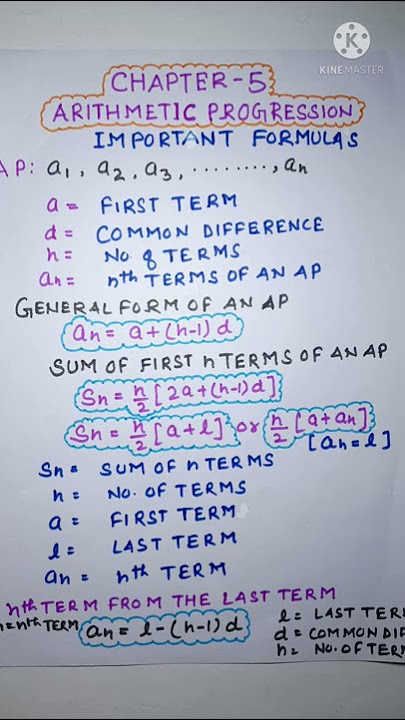 KINEMASTER
CHAPTER-5
ARITHMETIC PROGRESSION
IMPORTANT FORMULAS
AP: a₁, a₂, a₃, ........, aₙ
a = FIRST TERM
d = COMMON DIFFERENCE
n = No. of TERMS
aₙ = nth TERMS OF AN AP
GENERAL FORM OF AN AP
aₙ = a+(n-1)d
SUM OF FIRST n TERMS OF AN AP
Sₙ = n/2 [2a+(n-1)d]
Sₙ = n/2 [a+l] or n/2 [a+aₙ]
[aₙ = l]
Sₙ = SUM OF n TERMS
n = No. OF TERMS
a = FIRST TERM
l = LAST TERM
aₙ = nth TERM
nth TERM FROM THE LAST TERM
= nth TERM aₙ = l-(n-1)d
l = LAST TER
d = COMMON DIF
n = No. OF TER